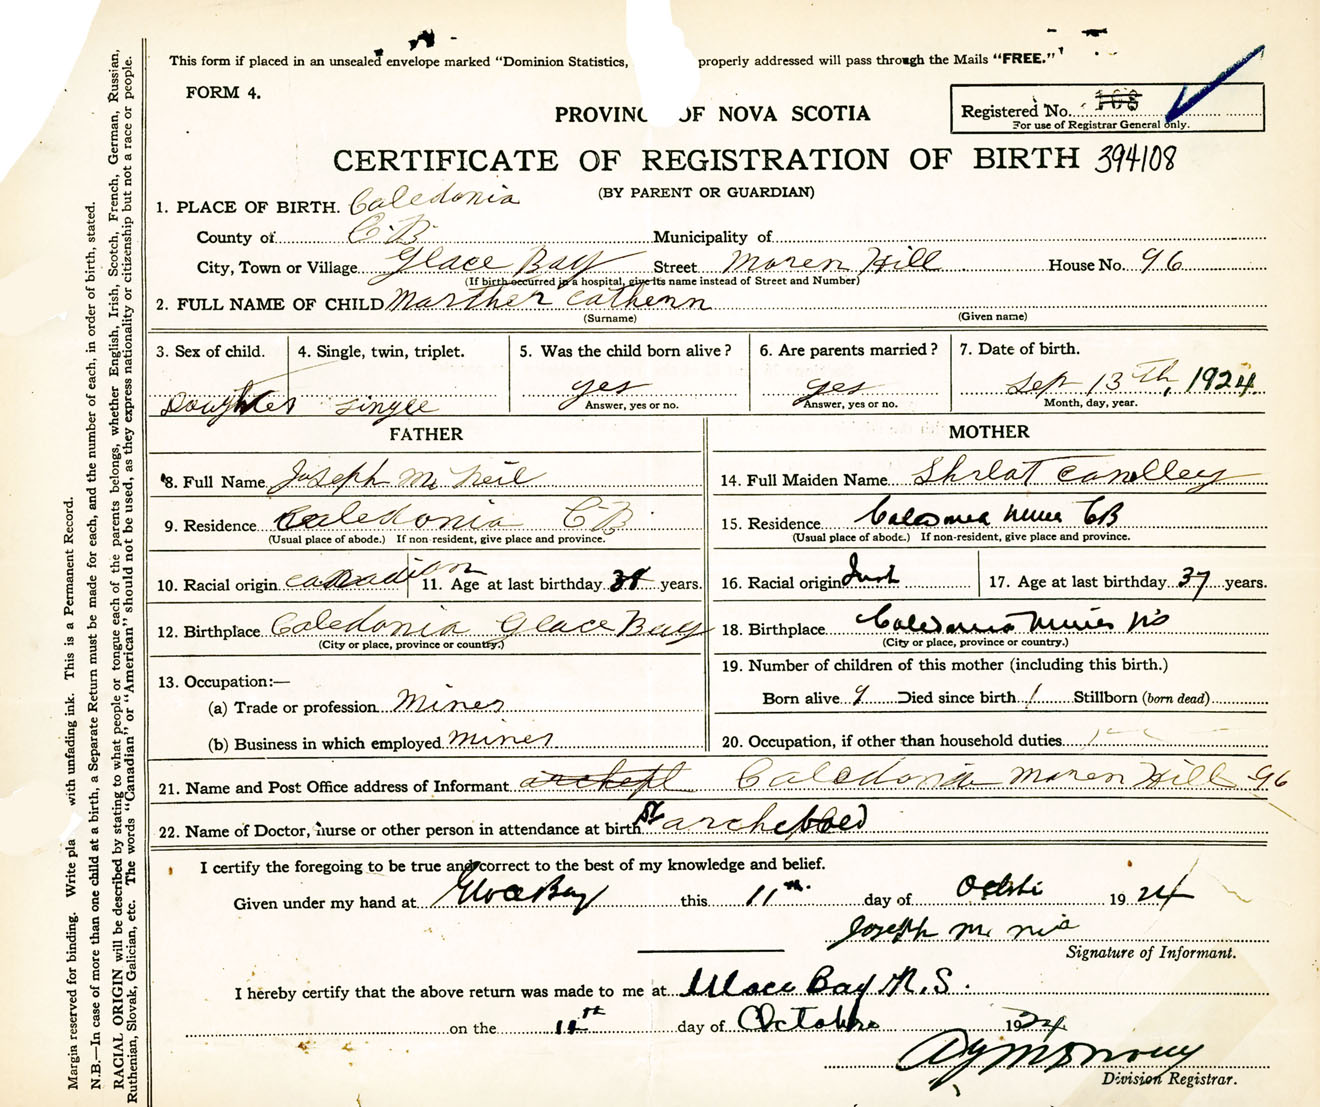 This form if placed in an unsealed envelope marked "Dominion Statistics, properly addressed will pass through the Mails "FREE."
FORM 4.
PROVINC OF NOVA SCOTIA
Registered No. 168
For use of Registrar General only.
CERTIFICATE OF REGISTRATION OF BIRTH 394108
(BY PARENT OR GUARDIAN)
1. PLACE OF BIRTH. Caledonia
County of C.B. Municipality of
City, Town or Village Glace Bay Street Moren Hill House No. 96
(If birth occurred in a hospital, give its name instead of Street and Number)
2. FULL NAME OF CHILD Marther Cathern
(Surname) (Given name)
3. Sex of child. 4. Single, twin, triplet. 5. Was the child born alive? 6. Are parents married? 7. Date of birth.
Daughter single yes yes Sep 13th, 1924.
Answer, yes or no. Answer, yes or no. Month, day, year.
FATHER
8. Full Name Joseph Mc Neil
9. Residence Caledonia C B
(Usual place of abode.) If non-resident, give place and province.
10. Racial origin canadian 11. Age at last birthday 38 years.
12. Birthplace Caledonia Glace Bay
(City or place, province or country.)
13. Occupation:—
(a) Trade or profession Miner
(b) Business in which employed mines
MOTHER
14. Full Maiden Name
15. Residence Caledonia Mines CB
(Usual place of abode.) If non-resident, give place and province.
16. Racial origin 17. Age at last birthday 37 years.
18. Birthplace Caledonia Mines NS
(City or place, province or country.)
19. Number of children of this mother (including this birth.)
Born alive 9 Died since birth 1 Stillborn (born dead)
20. Occupation, if other than household duties
21. Name and Post Office address of Informant Caledonia Moren Hill 96
22. Name of Doctor, nurse or other person in attendance at birth
I certify the foregoing to be true and correct to the best of my knowledge and belief.
Given under my hand at Glace Bay this 11th day of 1924
Joseph Mc
Signature of Informant.
I hereby certify that the above return was made to me at Glace Bay N.S.
on the 11th day of October 1924
Division Registrar.
Margin reserved for binding. Write pla with unfading ink. This is a Permanent Record.
N.B.—In case of more than one child at a birth, a Separate Return must be made for each, and the number of each, in order of birth, stated.
RACIAL ORIGIN will be described by stating to what people or tongue each of the parents belongs, whether English, Irish, Scotch, French, German, Russian,
Ruthenian, Slovak, Galician, etc. The words "Canadian" or "American" should not be used, as they express nationality or citizenship but not a race or people.